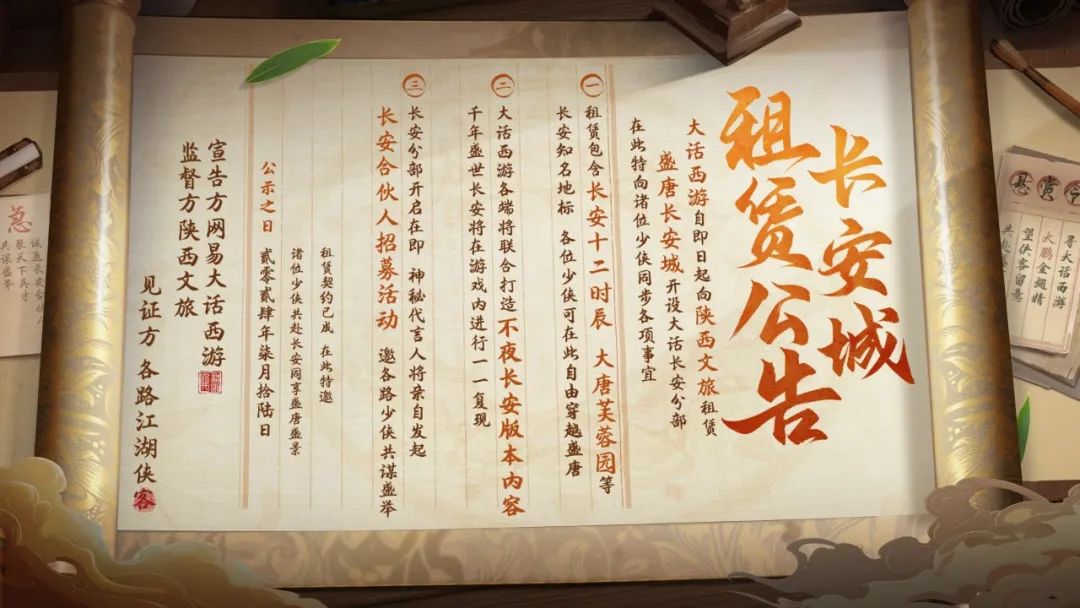 长安城
租赁公告
大话西游自即日起向陕西文旅租赁
盛唐长安城开设大话长安分部
在此特向诸位少侠同步各项事宜
一
租赁包含长安十二时辰 大唐芙蓉园等
长安知名地标 各位少侠可在此自由穿越盛唐
二
大话西游各端将联合打造不夜长安版本内容
千年盛世长安将在游戏内进行一一复现
三
长安分部开启在即 神秘代言人将亲自发起
长安合伙人招募活动 邀各路少侠共谋盛举
租赁契约已成 在此特邀
诸位少侠共赴长安同享盛唐盛景
公示之日 贰零贰肆年柒月拾陆日
宣告方网易大话西游
监督方陕西文旅
见证方 各路江湖侠客
悬赏令
寻大话西游
大鹏金翅精
望侠客留意
急
诚邀长安合伙人
聚天下英才
共谋盛举